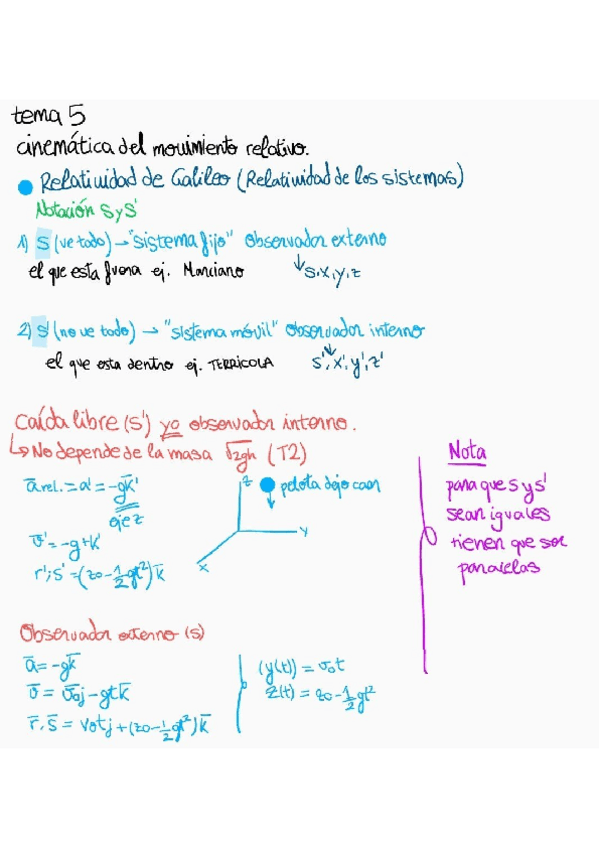 tema 5
cinemática del movimiento relativo.
Relatividad de Galileo (Relatividad de los sistemas)
Notación S y S'
1) S (ve todo) → "sistema fijo" observador externo
el que esta fuera ej. Marciano
S,x,y,z
2) S' (no ve todo) → "sistema móvil" observador interno
el que esta dentro ej. TERRÍCOLA
S',x',y',z'
Caída libre (S') yo observador interno.
↳ No depende de la masa √2gh (T2)
a̅ rel. = a̅' = -gk̅'
eje z
v̅' = -g+k'
r';s' = (z0-½gt²)k̅
z
pelota dejo caer
y
x
Nota
para que S y S'
sean iguales
tienen que ser
paralelas
Observador externo (s)
a̅ = -gk̅
v̅ = v̅0j - gtk̅
r̅.s̅ = v0tj + (z0-½gt²)k̅
(y(t)) = v0t
z(t) = z0-½gt²